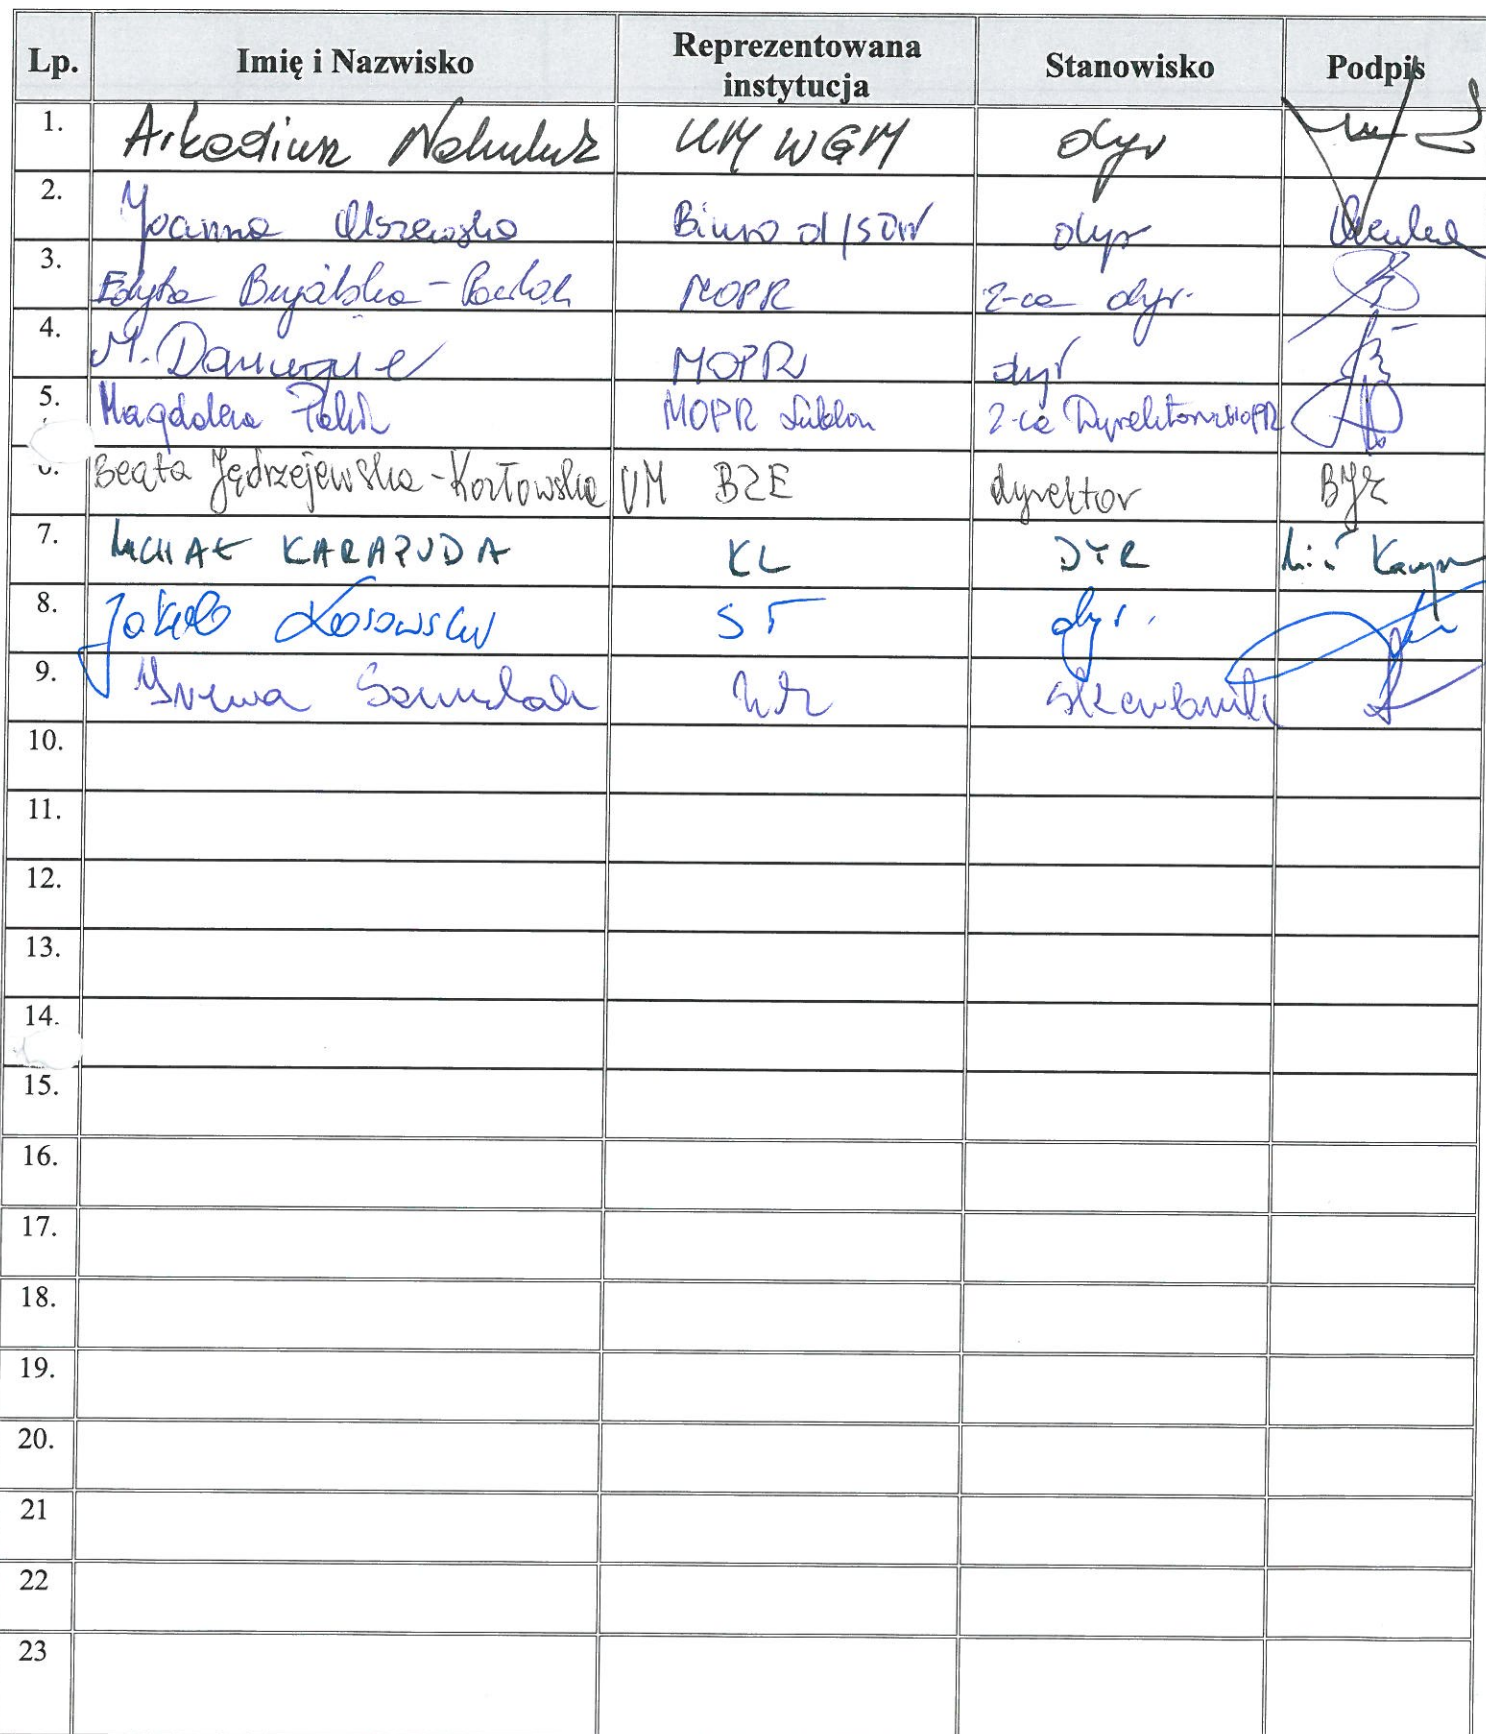 Lp. Imię i Nazwisko Reprezentowana instytucja Stanowisko Podpis
1. Arkadiusz Nahuluk UM WGM dyr
2. Joanna Olszewska Biuro d/s OW dyr
3. Edyta MOPR Z-ca dyr.
4. M. MOPR dyr
5. Magdalena MOPR Lublin Z-ca Dyrektora MOPR
6. Beata Jędrzejewska-Kozłowska UM BZE dyrektor BJK
7. MICHAŁ KARAPUDA KL DYR
8. Jakub Kosowski ST dyr.
9. Irena Szumlak
10.
11.
12.
13.
14.
15.
16.
17.
18.
19.
20.
21
22
23